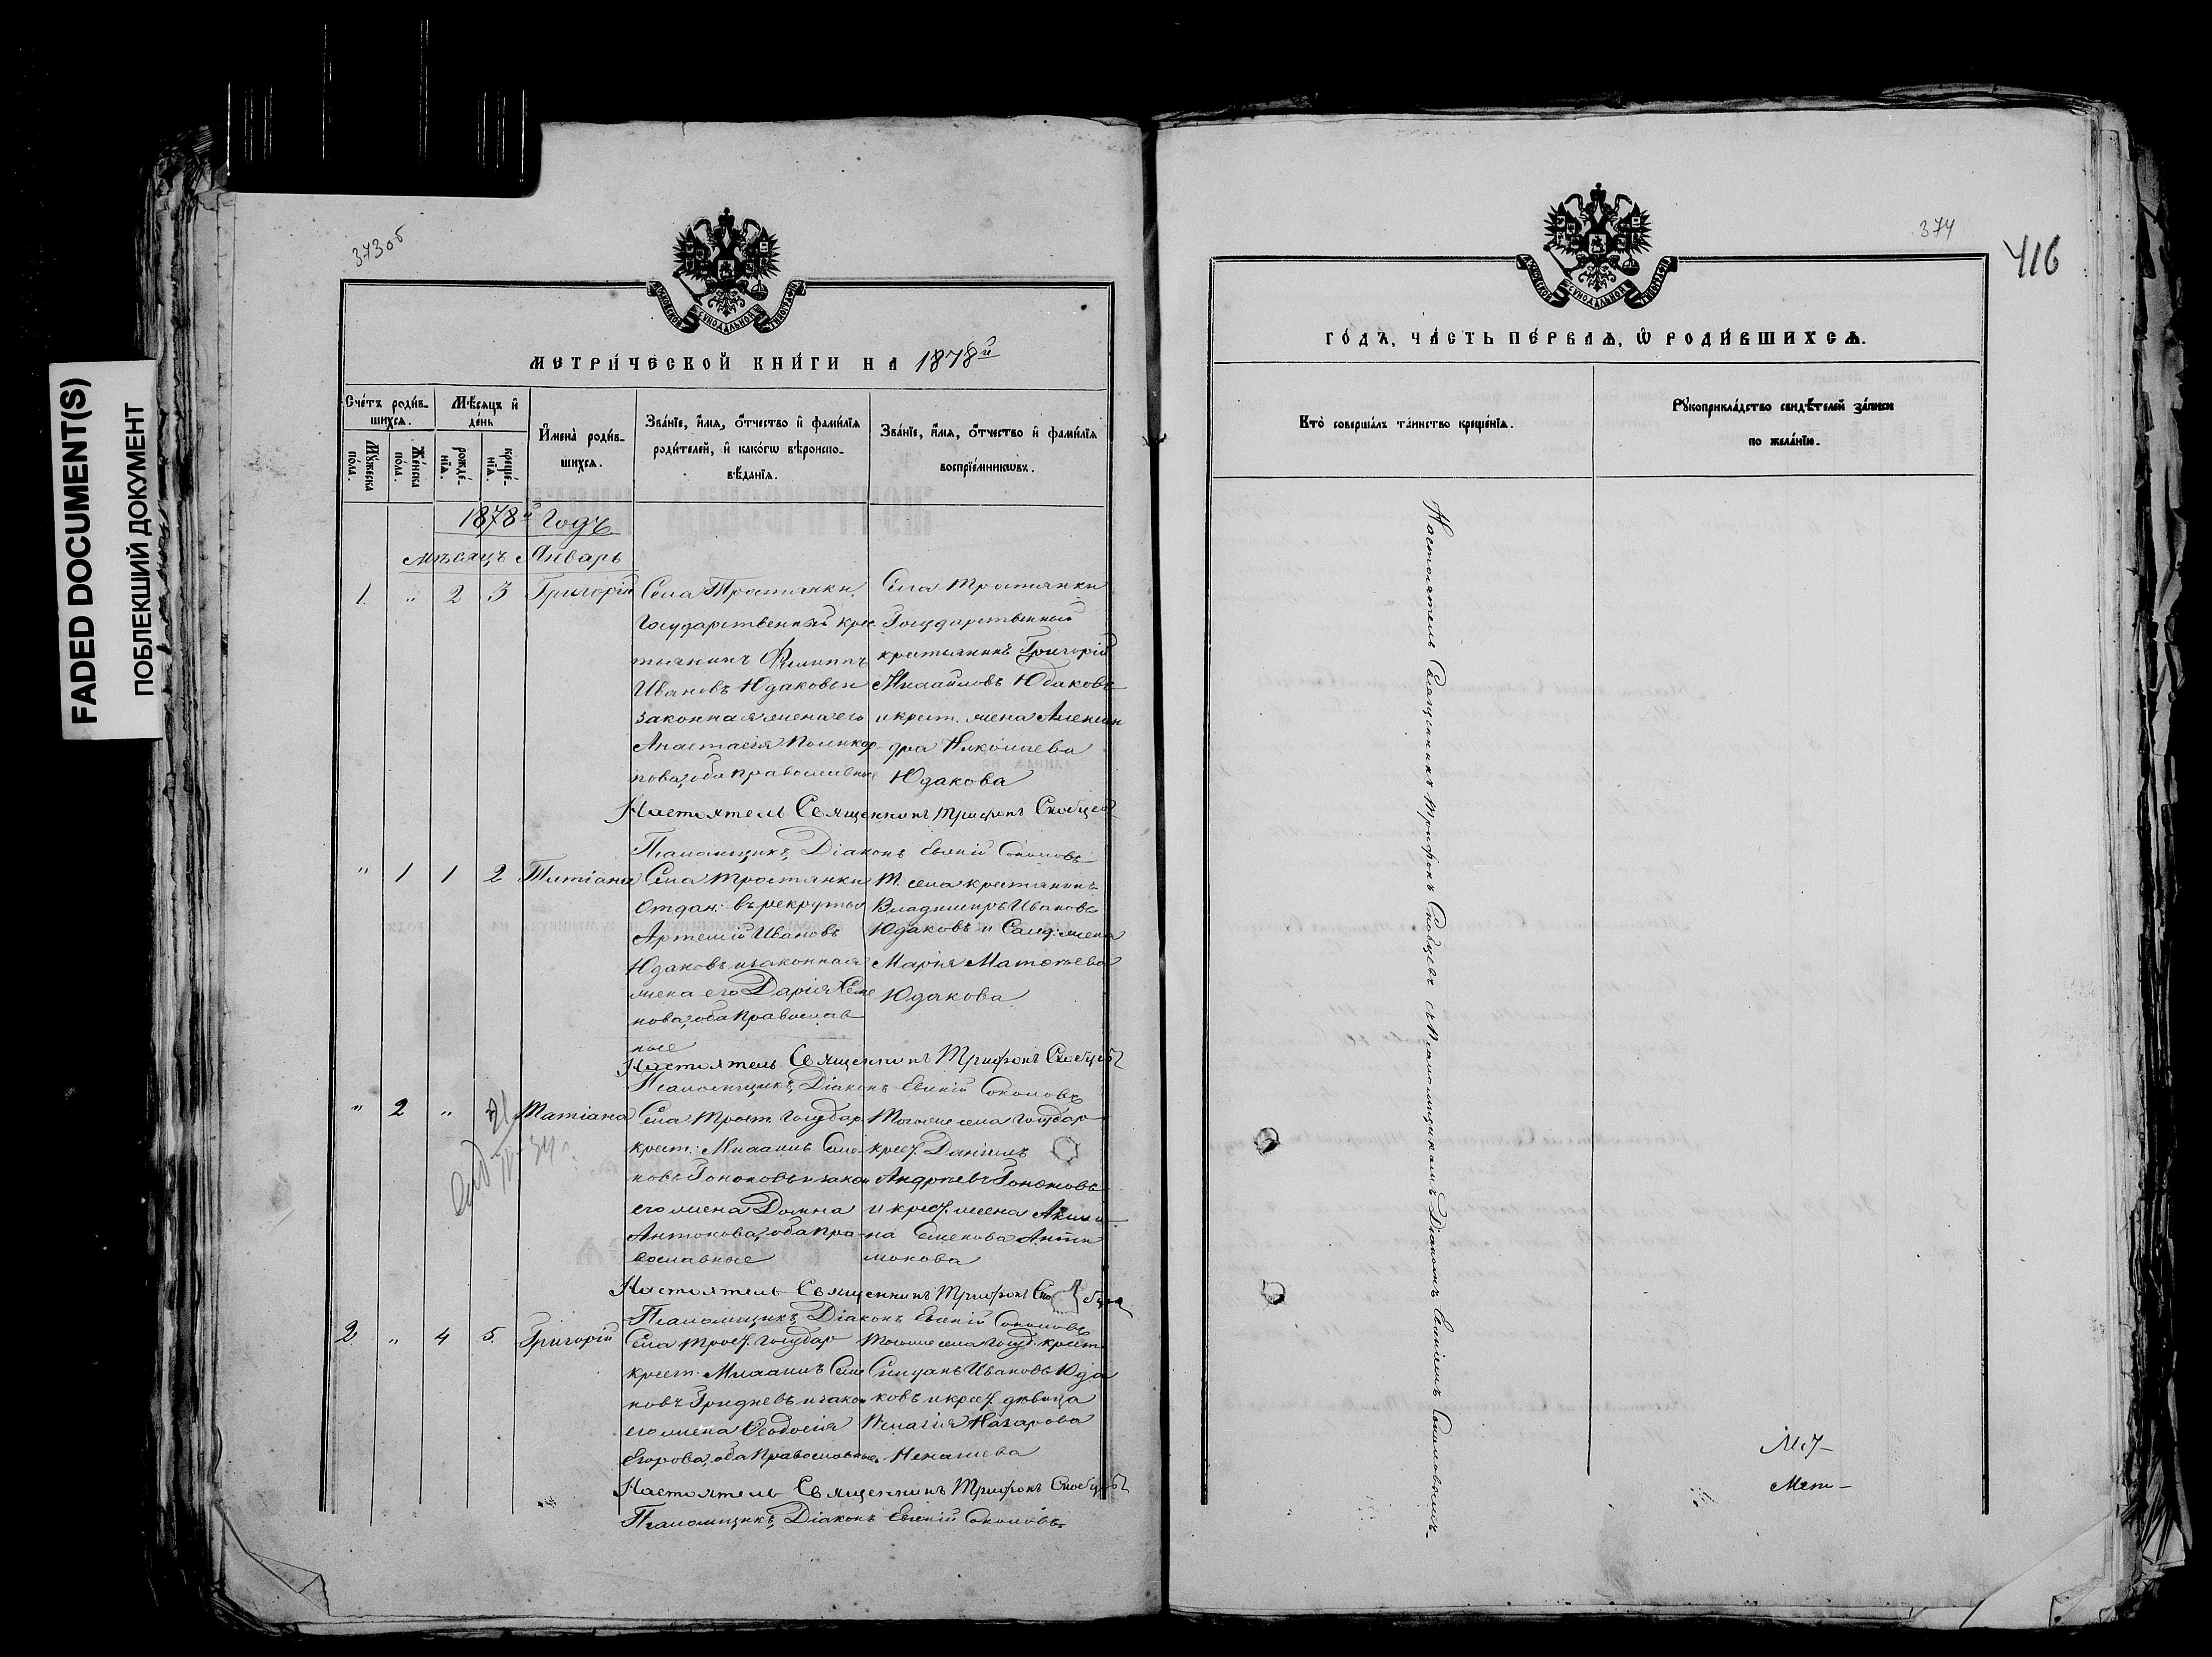 FADED DOCUMENT(S)
ПОБЛЕКШИЙ ДОКУМЕНТ
373об
МОСКОВСКОЙ СѴНОДАЛЬНОЙ ТИПОГРАФІИ
МЕТРИ́ЧЕСКОЙ КНИ́ГИ НА 1878й
Сче́тъ роди́в-
шихсѧ.
Мѣ́сѧцъ и҆
де́нь
Мꙋ́жеска
по́ла.
Же́нска
по́ла.
рожде́-
нїѧ.
креще́-
нїѧ.
И҆мена̀ роди́в-
шихсѧ.
Зва́нїе, и҆́мѧ, ѻ҆́тчество и҆ фами́лїѧ
роди́телей, и҆ како́гѡ вѣ̀роиспо-
вѣ́данїѧ.
Зва́нїе, и҆́мѧ, ѻ҆́тчество и҆ фами́лїѧ
воспрїе́мникѡвъ.
1878й Годъ
мѣсяцъ Январь
1. „ 2 3 Григорій
Села Тростянки
Государственный крес
тьянинъ Филиппъ
Ивановъ Юдаковъ и
законная жена его
Анастасія Поликар
пова, оба православные
Села Тростянки
Государственный
крестьянинъ Григорій
Михайловъ Юдаковъ
и крест. жена Алексан
дра Николаева
Юдакова
Настоятель Священникъ Трифонъ Скобцевъ
Псаломщикъ, Діаконъ Евгеній Соколовъ
„ 1 1 2 Татіана
Села Тростянки
Отдан: въ рекруты
Артемій Ивановъ
Юдаковъ и законная
жена его Дарія
нова, оба православ
ные
Т. села крестьянинъ
Владимиръ Ивановъ
Юдаковъ и Солд: жена
Марія Матвѣева
Юдакова
Настоятель Священникъ Трифонъ Скобцевъ
Псаломщикъ, Діаконъ Евгеній Соколовъ
„ 2 „ Татіана
Села Трост. Государ
крест. Михаилъ Семе
новъ Гоноковъ и закон
его жена Домна
Антонова, оба пра-
вославные
Тогоже села Государ
крест. Даніилъ
Андреевъ Гоноковъ
и крест. жена Акили
на Семенова Анти
монова
Настоятель Священникъ Трифонъ Скобцевъ
Псаломщикъ, Діаконъ Евгеній Соколовъ
2 „ 4 5. Григорій
Села Трост. Государ
крест. Михаилъ Семе
новъ Гридневъ и закон
его жена Ѳеодосія
Егорова, оба православные.
Тогоже села Госуд. крест.
Стефанъ Ивановъ Юда
ковъ и крест. дѣвица
Пелагія Назарова
Ненашева
Настоятель Священникъ Трифонъ Скобцевъ
Псаломщикъ, Діаконъ Евгеній Соколовъ
374
416
МОСКОВСКОЙ СѴНОДАЛЬНОЙ ТИПОГРАФІИ
ГО́ДЪ, ЧА́СТЬ ПЕ́РВАѦ, Ѽ РОДИ́ВШИХСѦ.
Кто̀ соверша́лъ та́инство креще́нїѧ.
Рꙋкоприкла́дство свидѣ́телей за́писи
по жела́нїю.
Настоятель Священникъ Трифонъ Скобцевъ съ Псаломщикомъ Діакономъ Евгеніемъ Соколовымъ